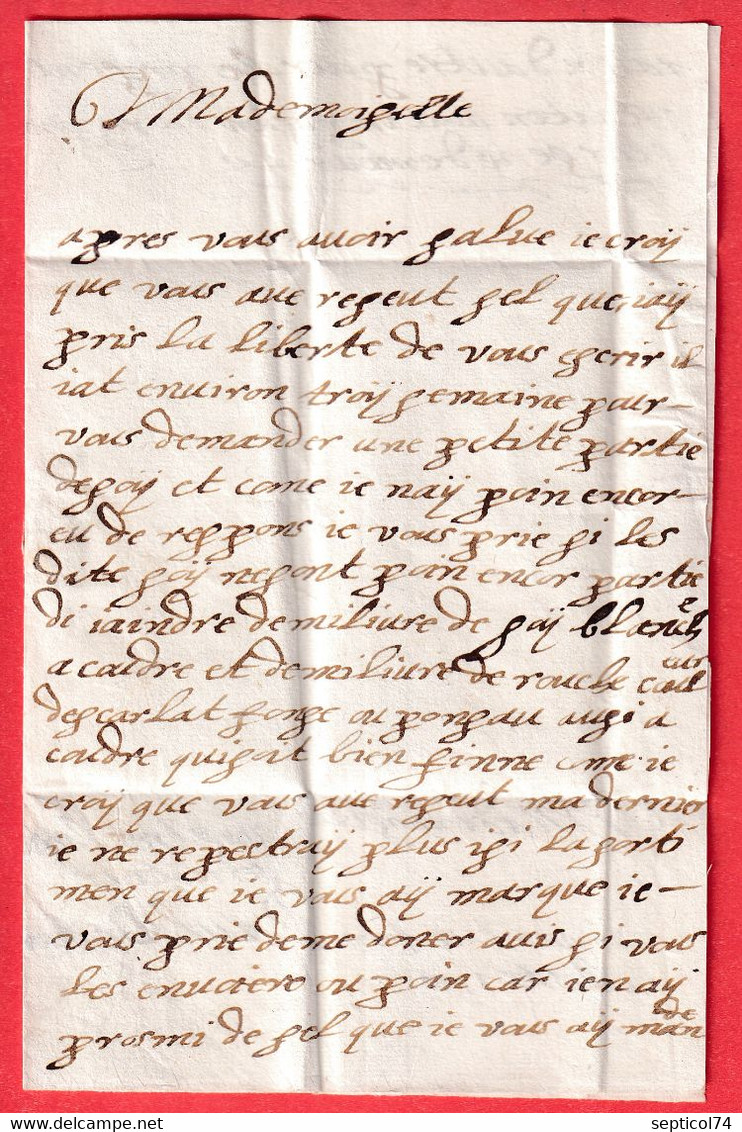 Mademoiselle
apres vous auoir salue ie croÿ
que vous aue reseut sel que iaÿ
pris la liberte de vous escrir il
iat enuiron troÿ semaine pour
vous demander une petite partie
de soÿ et come ie naÿ poin encor
eu de respons ie vous prie si les
dite soÿ ne sont poin encor partie
di iaindre demiliure de soÿ blanche
a coudre et demiliure de rouche coul eur
descarlat fonse ou ponsau ausi a
coudre qui soit bien finne come ie
croÿ que vous aue reseut ma dernier
ie ne repectraÿ plus isi lasorti
men que ie vous aÿ marque ie
vous prie de me doner auis si vous
les enuoiere ou poin car ien aÿ
prosmi de sel que ie vous aÿ man de
delcampe.net
septicol74